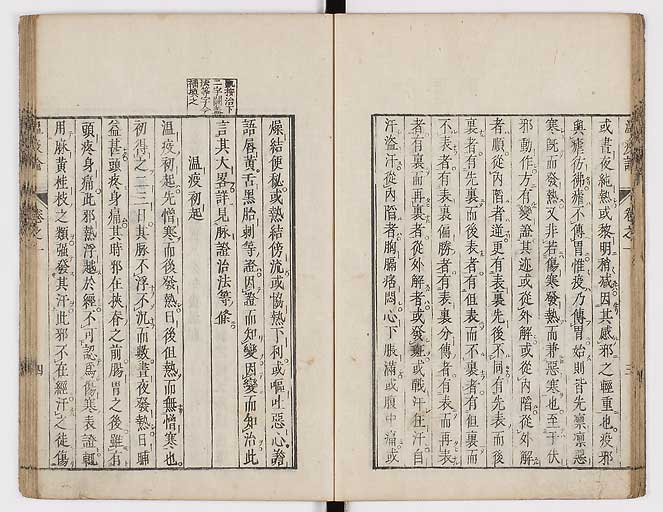 或晝夜純熱或黎明稍減因其感邪之輕重也疫邪
與瘧彷彿瘧不傳胃惟疫乃傳胃始則皆先凜凜惡
寒既而發熱又非若傷寒發熱而兼惡寒也至于伏
邪動作方有變證其迹或從外解或從內陷從外解
者順從內陷者逆更有表裏先後不同有先表而後
裏者有先裏而後表者有但表而不裏者有但裏而
不表者有表裏偏勝者有表裏分傳者有表而再表
者有裏而再裏者從外解者或發斑或戰汗狂汗自
汗盜汗從內陷者胸膈痞悶心下脹滿或腹中痛或
燥結便秘或熱結傍流或協熱下利或嘔吐惡心譫
語唇黃舌黑胎刺等證因證而知變因變而知治此
言其大畧詳見脉證治法等條
溫疫初起
溫疫初起先憎寒而後發熱日後但熱而無憎寒也
初得之二三日其脉不浮不沉而數晝夜發熱日晡
益甚頭疼身痛其時邪在挾脊之前腸胃之後雖有
頭疼身痛此邪熱浮越於經不可認爲傷寒表證輒
用麻黃桂枝之類強發其汗此邪不在經汗之徒傷
溫疫論
卷之一
四
溫疫論
卷之一
三